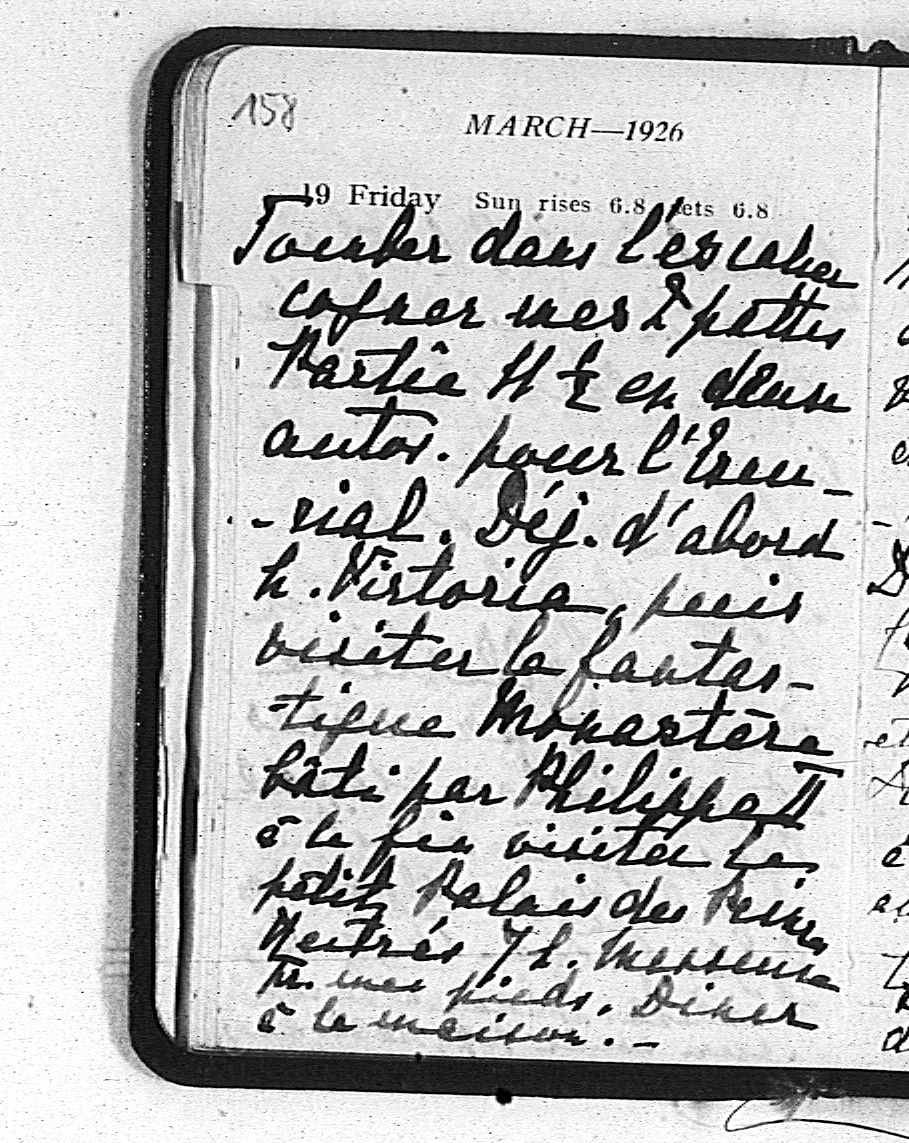 158
MARCH—1926
19 Friday Sun rises 6.8 sets 6.8
Tomber dans l'escalier
cogner mes 2 pattes
Partie 11 1/2 en deux
autos. pour l'Escu-
-rial. Déj. d'abord
h. Victoria, puis
visiter le fantas-
-tique Monastère
bâti par Philippe II
à la fin visiter le
petit Palais du Prince
Rentrés 7 h. Masseuse
pr. mes pieds. Diner
à la maison. -